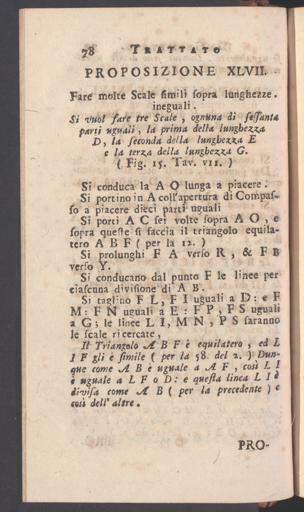 78 TRATTATO
PROPOSIZIONE XLVII.
Fare molte Scale simili sopra lunghezze
ineguali.
Si vuol fare tre Scale, ognuna di sessanta
parti uguali, la prima della lunghezza
D, la seconda della lunghezza E
e la terza della lunghezza G.
( Fig. 15. Tav. VII. )
Si conduca la A O lunga a piacere.
Si portino in A coll'apertura di Compas-
so a piacere dieci parti uguali
Si porti A C sei volte sopra A O, e
sopra queste si faccia il triangolo equila-
tero A B F ( per la 12. )
Si prolunghi F A verso R, & F B
verso Y.
Si conducano dal punto F le linee per
ciascuna divisione di A B.
Si taglino F L, F I uguali a D: e F
M: F N uguali a E: F P, F S uguali
a G; le linee L I, M N, P S saranno
le scale ricercate.
Il Triangolo A B F è equilatero, ed L
I F gli è simile ( per la 58. del 2. ) Dun-
que come A B è uguale a A F, così L I
è uguale a L F o D: e questa linea L I è
divisa come A B ( per la precedente ) e
così dell' altre.
PRO-